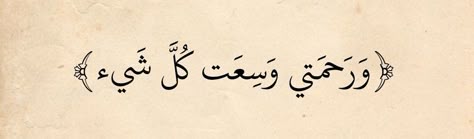 ﴿وَرَحمَتي وَسِعَت كُلَّ شَيء﴾